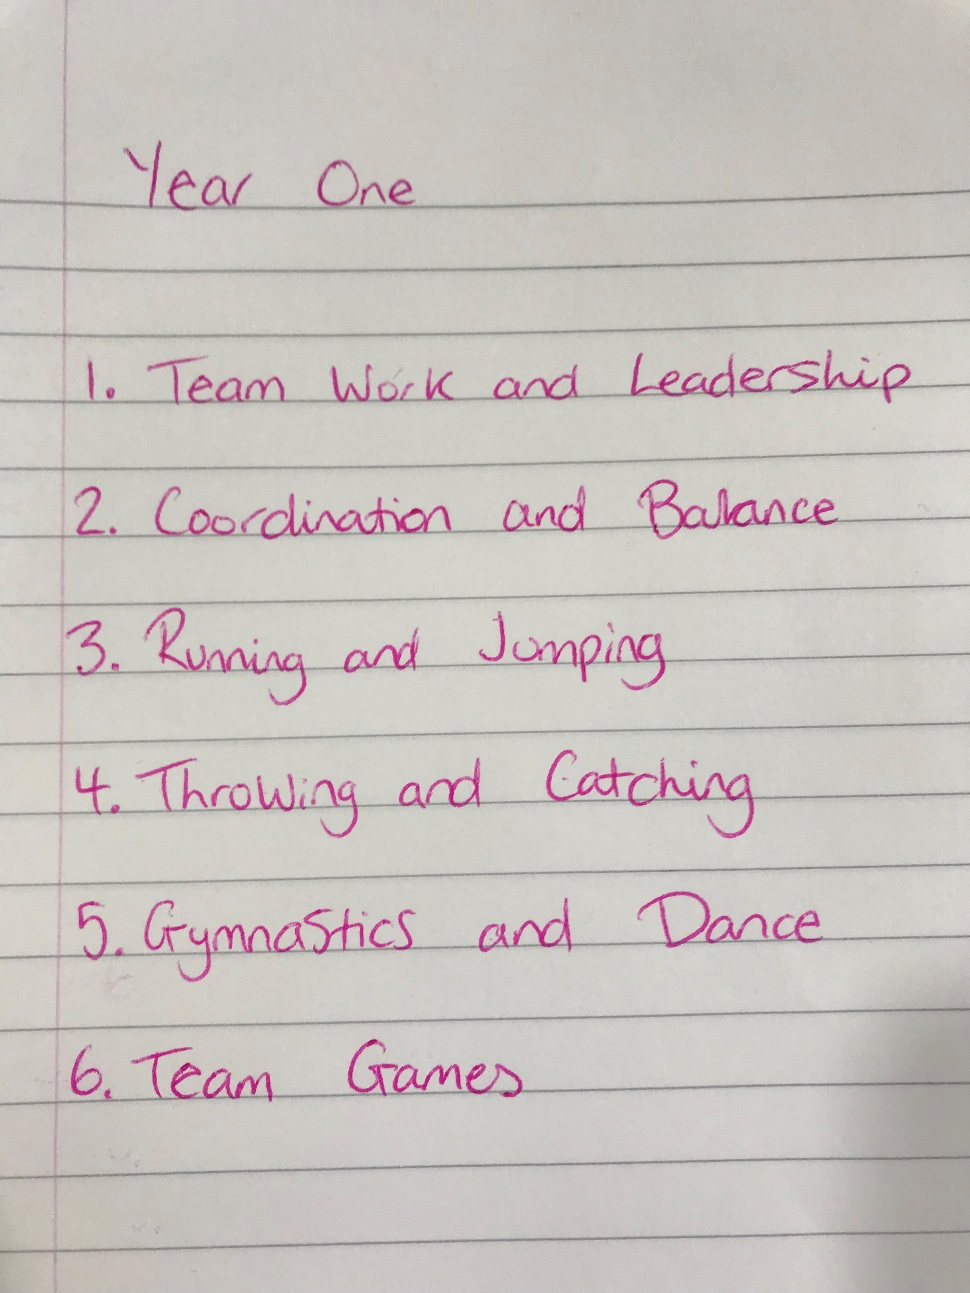 Year One
1. Team Work and Leadership
2. Coordination and Balance
3. Running and Jumping
4. Throwing and Catching
5. Gymnastics and Dance
6. Team Games